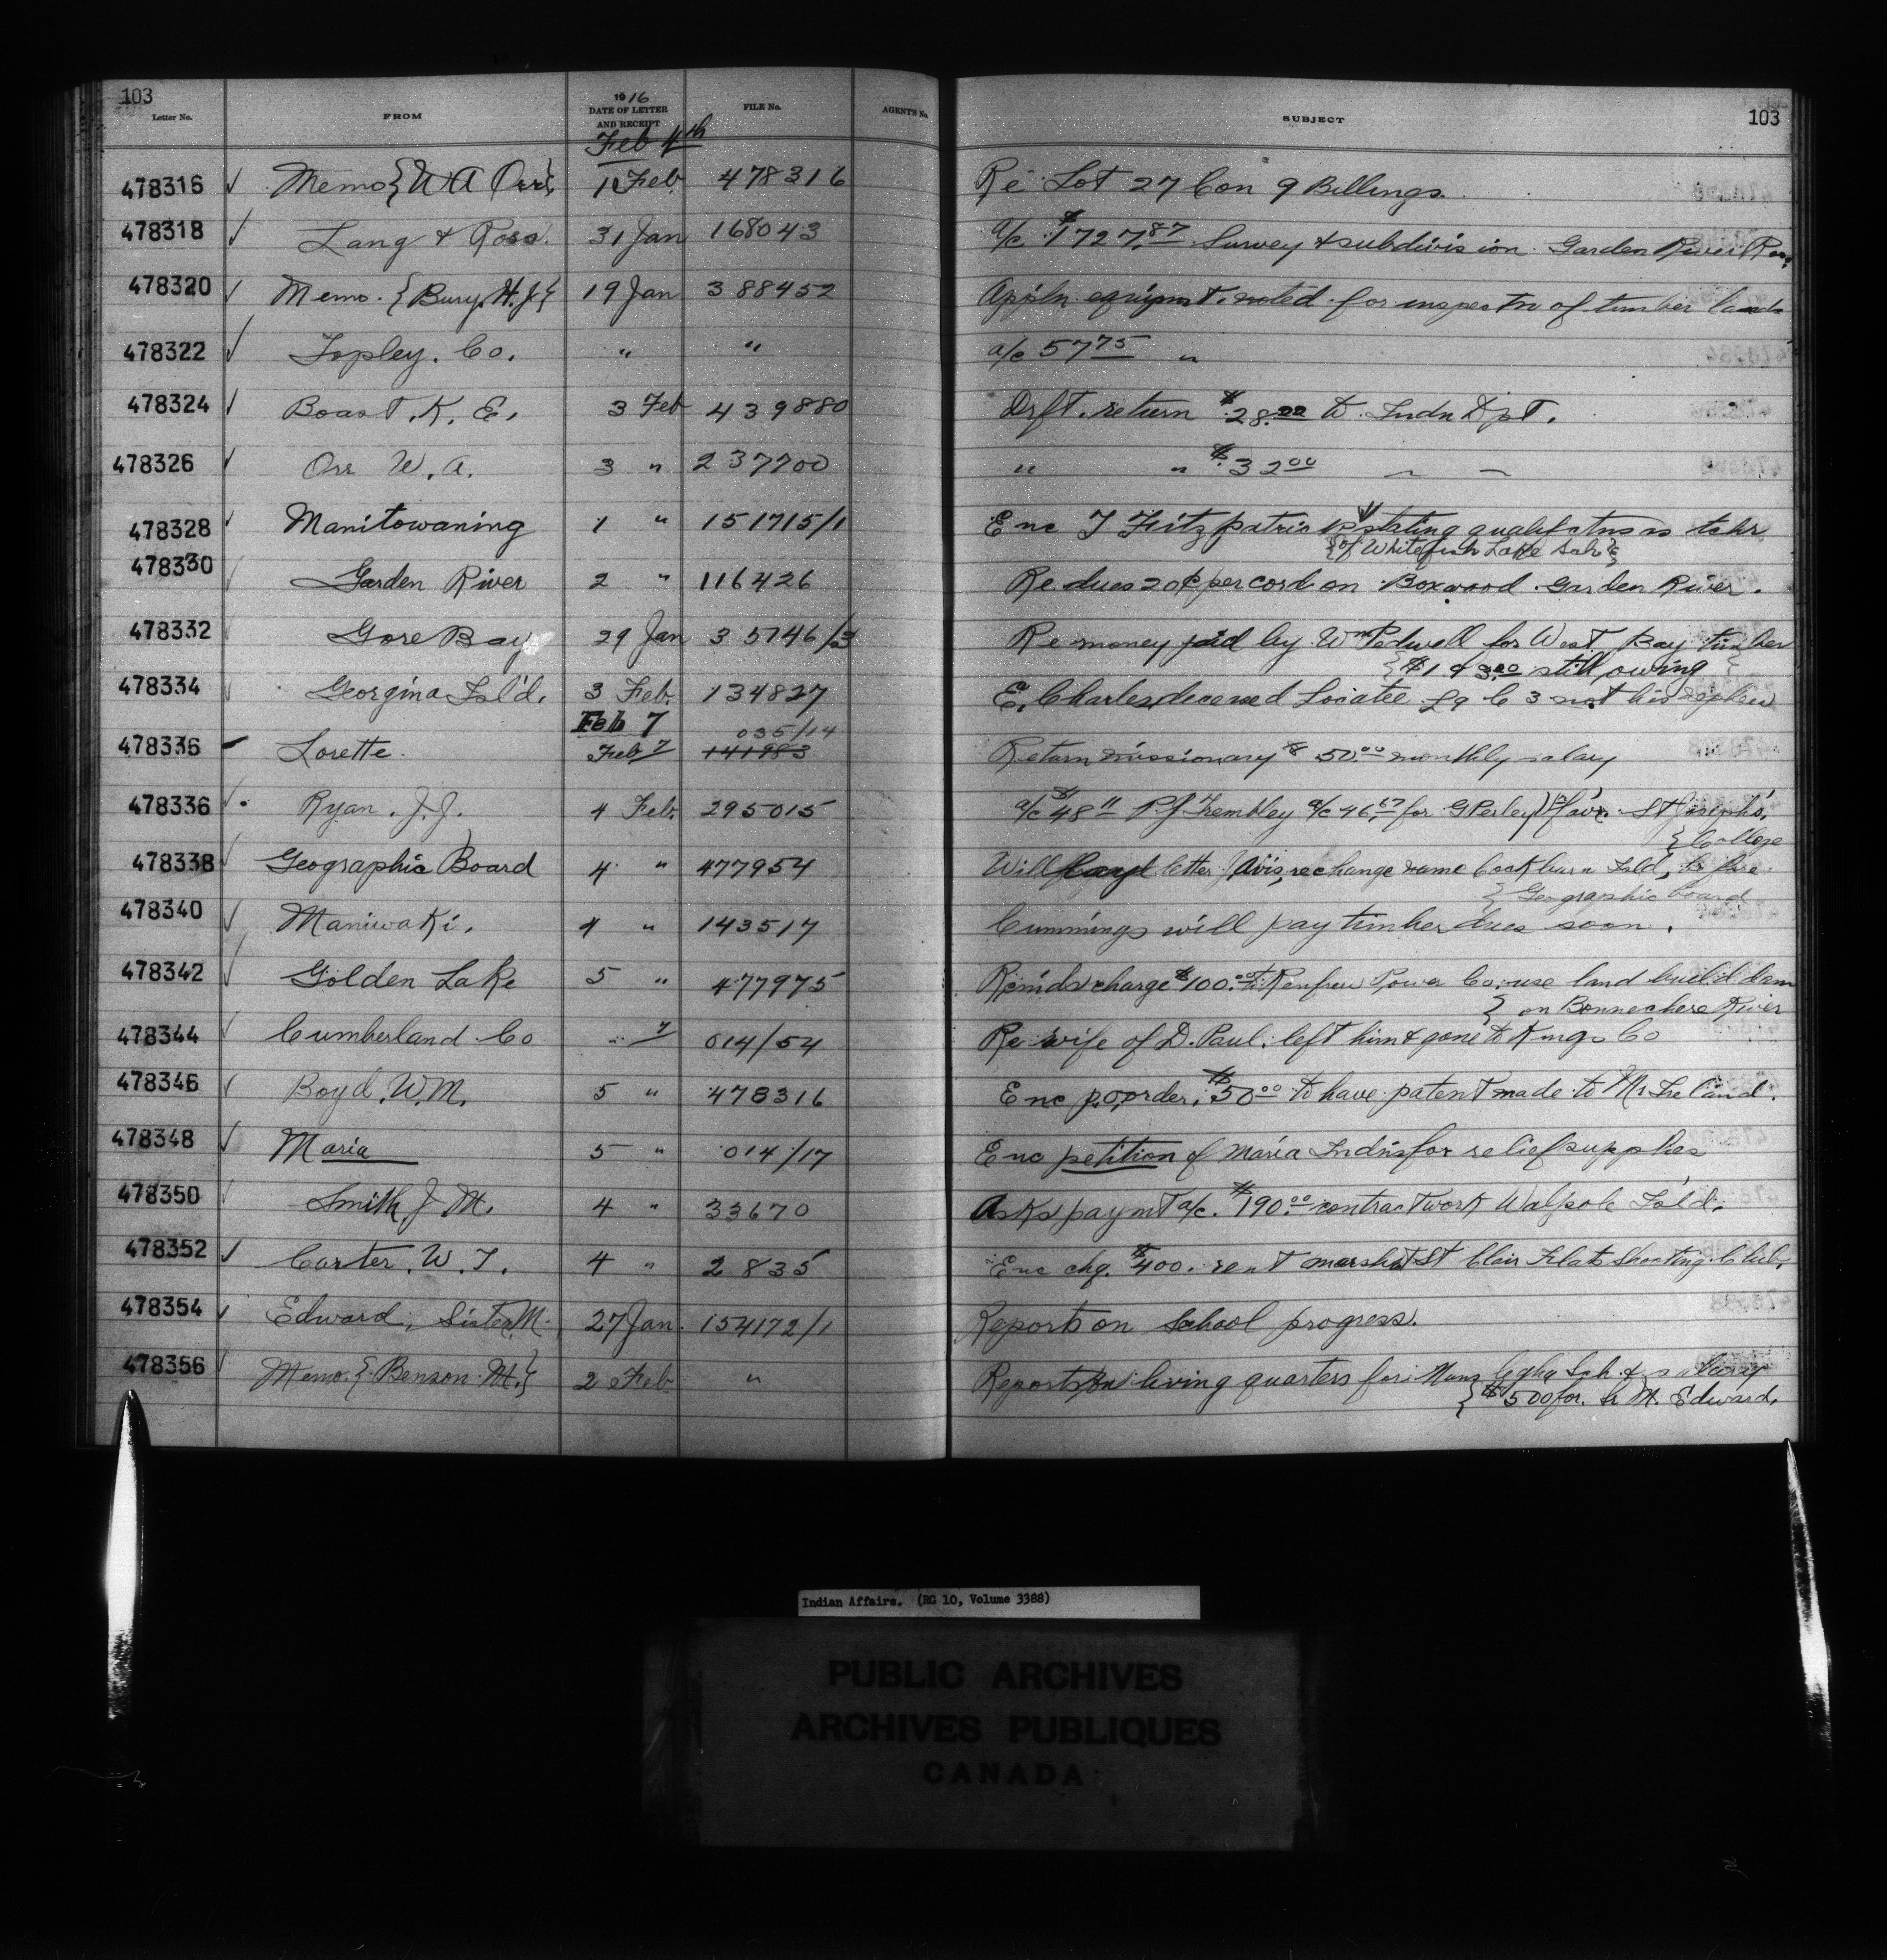 103
Letter No. FROM 1916 DATE OF LETTER AND RECEIPT FILE No. AGENT'S No. SUBJECT 103
Feb 4th
478316 Memo {W A Orr} 1 Feb. 478316 Re Lot 27 Con 9 Billings.
478318 Lang & Ross. 31 Jan 168043 a/c $1727.87 Survey & subdivision Garden River
478320 Memo. {Bury. H.J.} 19 Jan 388452 Appln equipmt. noted for inspectn of timber lands
478322 Topley. Co. " " a/c 57 75 "
478324 Boast. K. E. 3 Feb 439880 Drft. return $28.22 to Indn Dpt.
478326 Orr W. A. 3 " 237700 " " $32 00
478328 Manitowaning 1 " 151715/1 Enc J Fitzpatrick stating qualifctns as tchr
{of Whitefish Lake Sch}
478330 Garden River 2 " 116426 Re dues 20¢ per cord on Boxwood Garden River.
478332 Gore Bay 29 Jan 35746/3 Re money paid by Wm Pedwell for West Bay timber
{ still owing }
478334 Georgina Isl'd. 3 Feb. 134827 E. Charles deceased Locatee L9 C 3 not his nephew
Feb 7 035/14
478336 Lorette. Feb 7 141983 Return missionary $50.00 monthly salary
478336 Ryan. J. J. 4 Feb. 295015 a/c $48 11 P.J Trembley a/c 46.67 for G Perley St Joseph's.
} College
478338 Geographic Board 4 " 477954 Will letter re change name Cockburn Isld, before
} Geographic board
478340 Maniwaki. 4 " 143517 Cummings will pay timber dues soon.
478342 Golden Lake 5 " 477975 Reminds charge $100.00 to Renfrew Power Co. use land build dam
} on Bonnechere River
478344 Cumberland Co " 7 014/54 Re wife of D. Paul. left him & gone to Kings Co
478346 Boyd. W.M. 5 " 478316 Enc p.o. order. $50 00 to have patent made to Mr Ireland.
478348 Maria 5 " 014/17 Enc petition of Maria Indns for relief supplies
478350 Smith J M. 4 " 33670 Asks paymt a/c. $190.00 contract work Walpole Isl'd.
478352 Carter. W. J. 4 " 2835 Enc chq. $400. rent marsh St Clair Flats Shooting Club.
478354 Edward, Sister M. 27 Jan. 154172/1 Reports on School progress.
478356 Memo. {Benson M.} 2 Feb. " Reports on living quarters for Nuns Sch. & salary
{ $500 for. Sr M. Edward.
Indian Affairs. (RG 10, Volume 3388)
PUBLIC ARCHIVES
ARCHIVES PUBLIQUES
CANADA